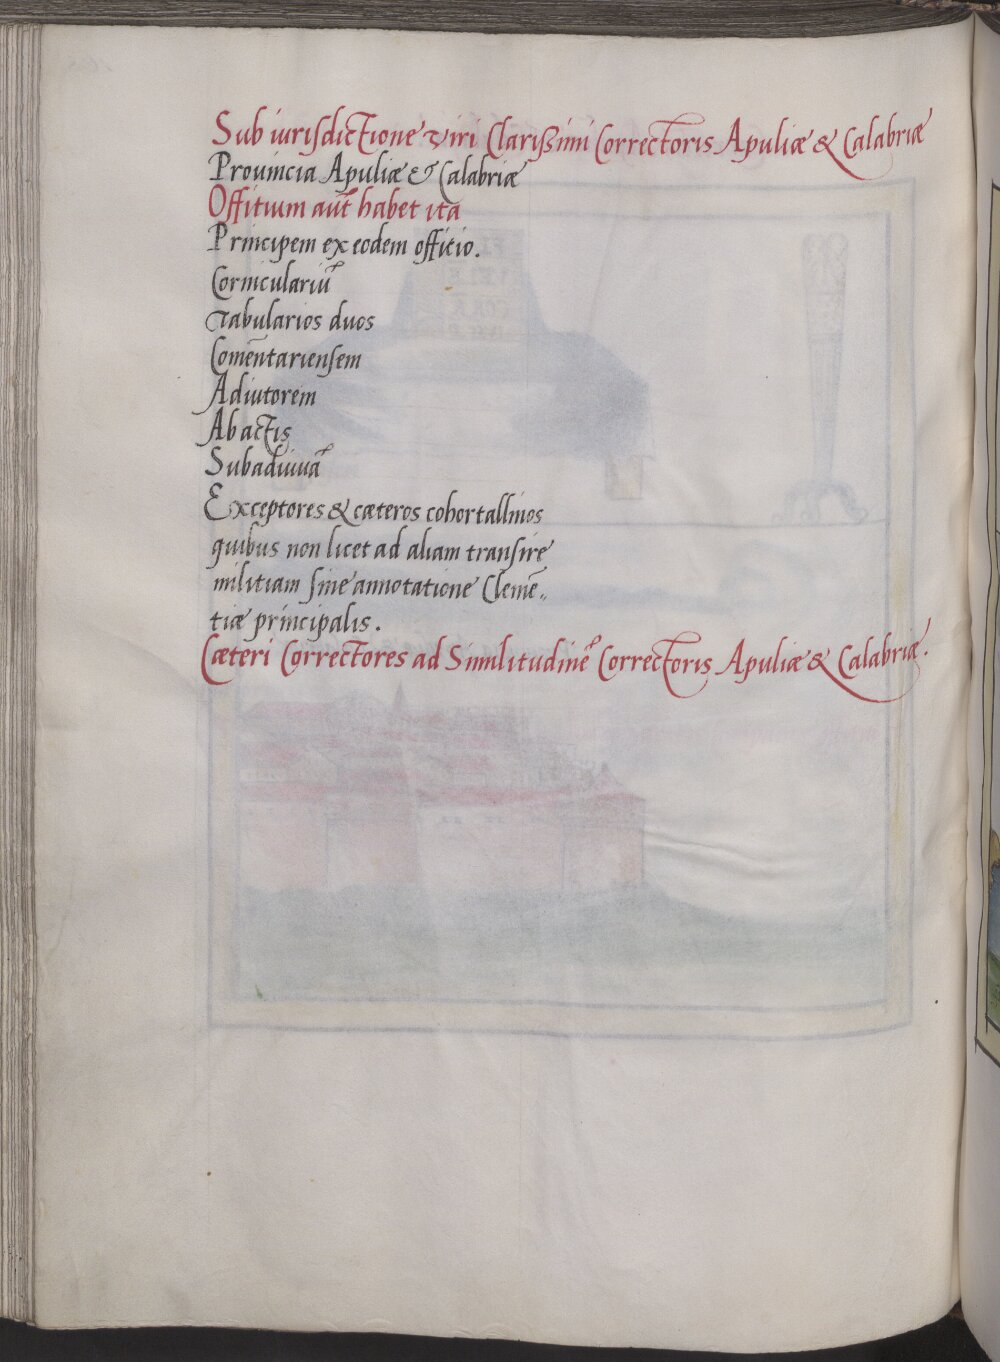 Sub iurisdictione viri Clarißimi Correctoris Apuliæ & Calabriæ
Prouincia Apuliæ & Calabriæ
Offitium aut̃ habet ita
Principem ex eodem offitio.
Corniculariũ
Tabularios duos
Comẽntariensem
Adiutorem
Ab actis
Subadiuuã
Exceptores & cæteros cohortallinos
quibus non licet ad aliam transire
militiam sine annotatione Clemẽ„
tiæ principalis.
Cæteri Correctores ad Similitudinẽ Correctoris Apuliæ & Calabriæ.